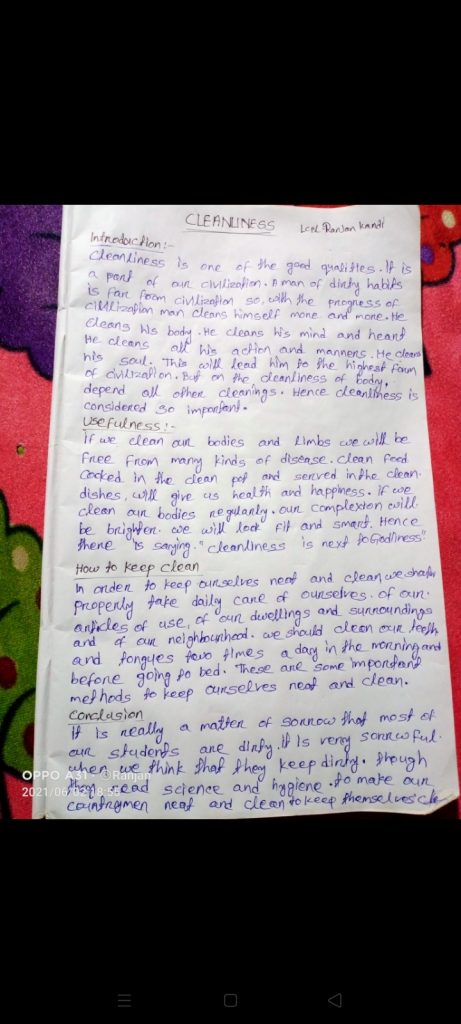 CLEANLINESS Ranjan Kandi
Introduction:-
Cleanliness is one of the good qualities. It is
a part of our civilization. A man of dirty habits
is far from civilization so, with the progress of
civilization man cleans himself more and more. He
cleans his body. He cleans his mind and heart
He cleans all his action and manners. He cleans
his soul. This will lead him to the highest form
of civilization. But on the cleanliness of body,
depend all other cleanings. Hence cleanliness is
considered so important.
Usefulness:-
if we clean our bodies and limbs we will be
free from many kinds of disease. clean food
cooked in the clean pot and served in the clean.
dishes, will give us health and happiness. if we
clean our bodies regularly. our complexion will
be brighter. we will look fit and smart. Hence
there is saying. "cleanliness is next to Godliness"
How to keep clean
In order to keep ourselves neat and clean we
properly take daily care of ourselves. of our.
articles of use, of our dwellings and surroundings
and of our neighbourhood. we should clean our teeth
and tongues two times a day in the morning and
before going to bed. These are some important
methods to keep ourselves neat and clean.
Conclusion
It is really a matter of sorrow that most of
our students are dirty. It is very sorrowful.
when we think that they keep dirty. though
they read science and hygiene. to make our
countrymen neat and clean to keep themselves
OPPO A31 · ©Ranjan
2021/06/0 18:55